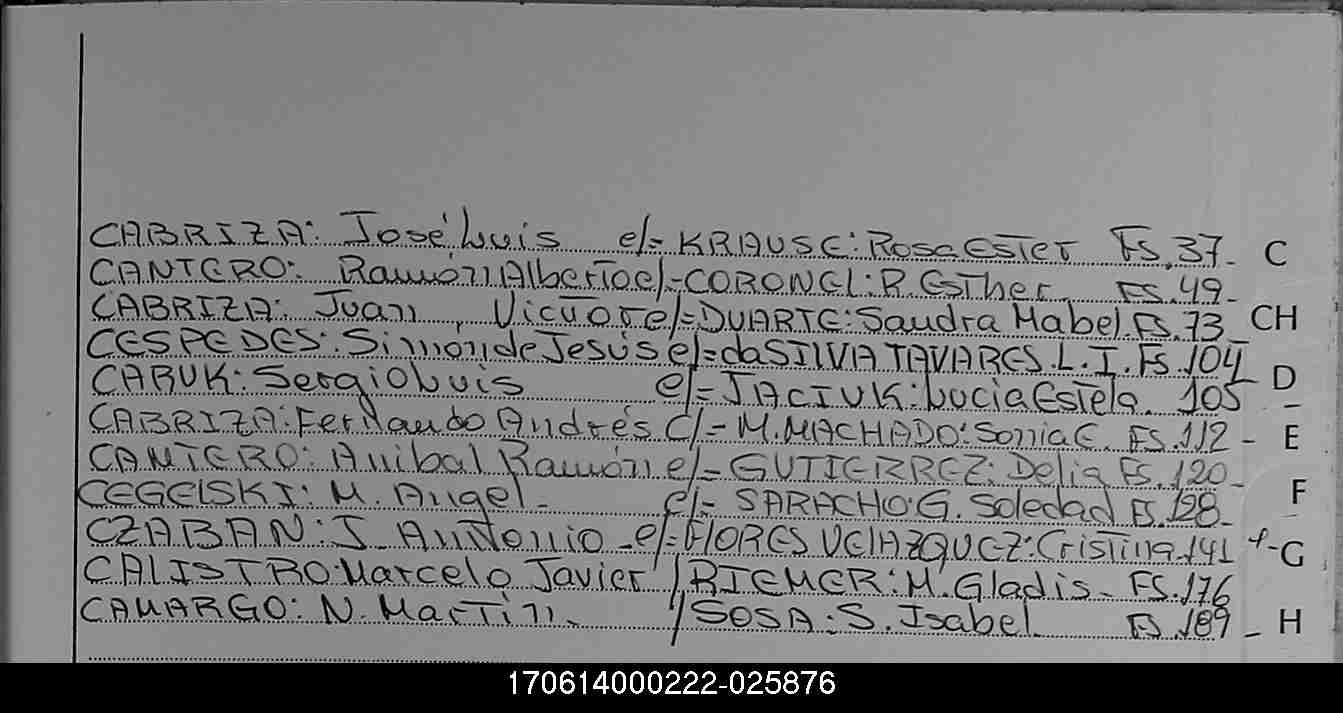 CABRIZA: José Luis e/= KRAUSE: Rosa Ester Fs. 37- C
CANTERO: Ramón Alberto e/-CORONEL: R. Esther Fs. 49-
CABRIZA: Juan, Victor e/=DUARTE: Sandra Mabel Fs. 73 CH
CESPEDES: Simon de Jesús e/=da SILVA TAVARES. L. I. Fs. 104
CARUK: Sergio Luis e/= JACIUK: Lucia Estela. 105 D
CABRIZA: Fernando Andrés C/- M. MACHADO: Sonia E. Fs. 112 - E
CANTERO: Anibal Ramón e/= GUTIERREZ: Delia Fs. 120-
CEGELSKI: M. Angel- C/- SARACHO: G. Soledad Fs. 128- F
CZABAN: J. Antonio -e/= FLORES VELAZQUEZ: Cristina 141 G
CALISTRO: Marcelo Javier / RIEMER: M. Gladis- FS. 176
CAMARGO: N. Martin- / SOSA: S. Isabel Fs. 189- H
170614000222-025876